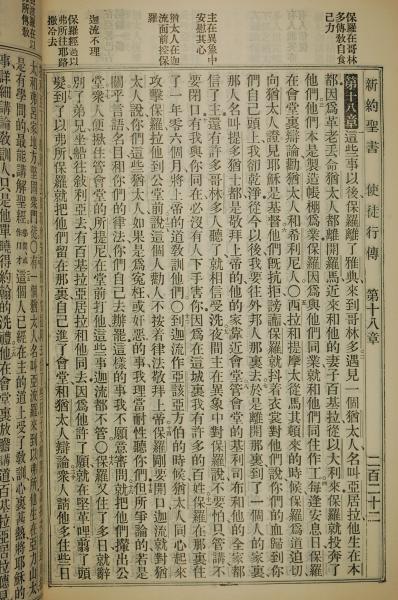 新約聖書 使徒行傳 第十八章 二百二十二
保羅在哥林
多傳教自食
己力
主在異象中
安慰其心
猶太人在迦
流面前控保
羅
迦流不理
保羅經過以
弗所往耶路
撒冷去
第十八章 這些事以後保羅離了雅典來到哥林多遇見一個猶太人名叫亞居拉他生在本
都因為革老丟命猶太人都離開羅馬近來和他的妻子百基拉從以大利來保羅就投奔了
他們他們本是製造帳棚為業保羅因為與他們同業就和他們同住作工每逢安息日保羅
在會堂裏辯論勸猶太人和希利尼人〇西拉和提摩太從馬其頓來的時候保羅為道迫切
向猶太人證見耶穌是基督他們既抗拒謗讟保羅就抖着衣裳對他們說你們的血歸到你
們自己頭上我卻乾淨從今以後我要往外邦人那裏去於是離開那裏到了一個人的家裏
那人名叫提多猶士都是敬拜上帝的他的家靠近會堂管會堂的基利司布和他的全家都
信了主還有許多哥林多人聽了就相信受洗夜間主在異象中對保羅說不要怕只管講不
要閉口有我與你同在必沒有人下手害你因為在這城裏我有許多的百姓保羅在那裏住
了一年零六個月將上帝的道教訓他們〇到迦流作亞該亞方伯的時候猶太人同心起來
攻擊保羅拉他到公堂前說這個人勸人不按着律法敬拜上帝保羅剛要開口迦流就對猶
太人說你們這些猶太人如果是為冤枉或奸惡的事我理當耐性聽你們但所爭論的若是
關乎言語名目和你們的律法你們自己去辦罷這樣的事我不願意審問就把他們攆出公
堂衆人便揪住管會堂的所提尼在堂前打他這些事迦流都不管〇保羅又住了多日就辭
別了弟兄坐船往敘利亞去有百基拉亞居拉和他同去因為他許了願就在堅革哩剪了頭
髮到了以弗所保羅就把他們留在那裏自己進了會堂和猶太人辯論衆人請他多住些日